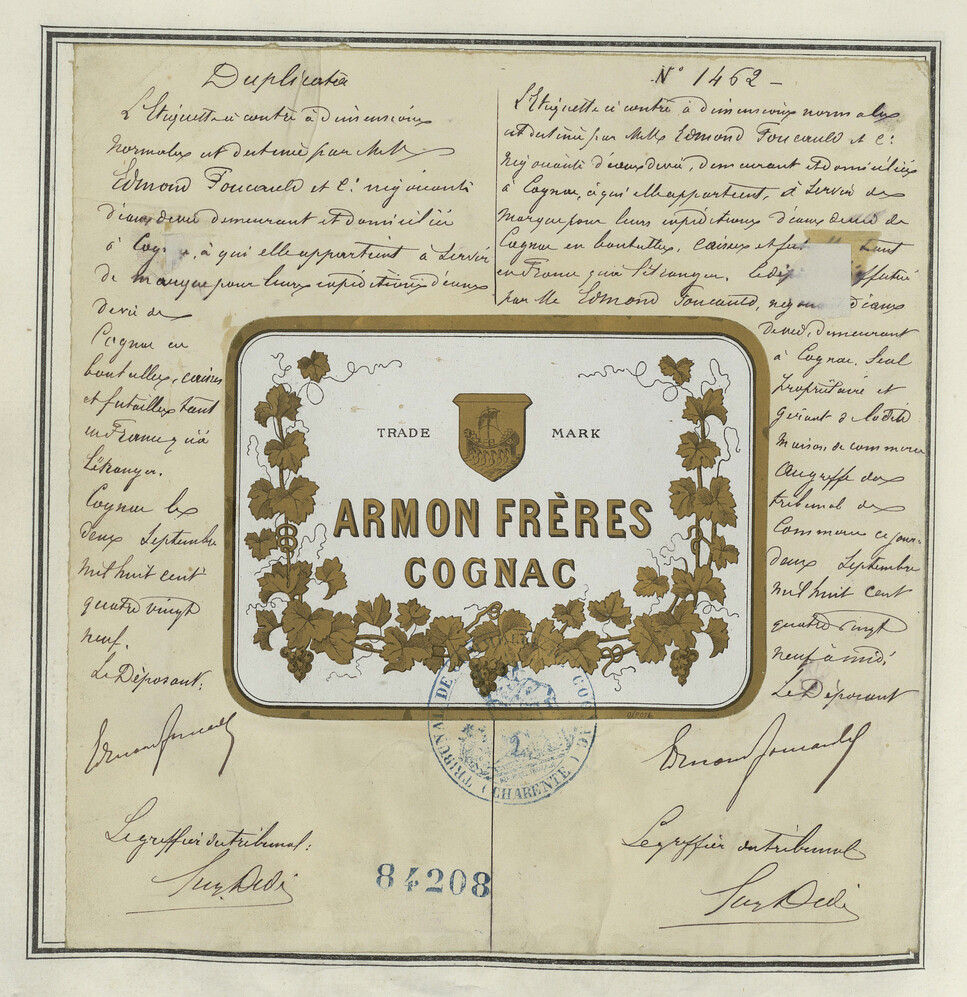 Duplicata
L'Etiquette ci contre à dimensions
normales est destinée par MM
Edmond Foucauld et Cie négociants
d'eaux de vie demeurant et domiciliés
à , à qui elle appartient à servir
de marque pour leurs expéditions d'eaux
de vie de
Cognac en
bouteilles, caisses
et futailles tant
en France qu'à
l'étranger.
Cognac les
deux Septembre
mil huit cent
quatre vingt
neuf.
Le Déposant:
Edmond Foucauld
Le greffier du tribunal:
N° 1462 -
L'Etiquette ci contre à dimensions normales
est destinée par MM Edmond Foucauld et Cie
négociants d'eaux de vie, demeurant et domiciliés
à Cognac, à qui elle appartient, à servir de
marque pour leurs expéditions d'eaux de vie de
Cognac en bouteilles, caisses et tant
en France qu'à l'étranger.
par Mr Edmond Foucauld, d'eaux
de vie, demeurant
à Cognac. Seul
propriétaire et
gérant de la dite
maison de commerce
Au greffe du
tribunal de
Commerce ce jour
deux Septembre
mil huit cent
quatre vingt
neuf à midi.
Le Déposant
Edmond Foucauld
Le greffier du tribunal
TRADE MARK
ARMON FRÈRES
COGNAC
TRIBUNAL DE (CHARENTE)
2
84208